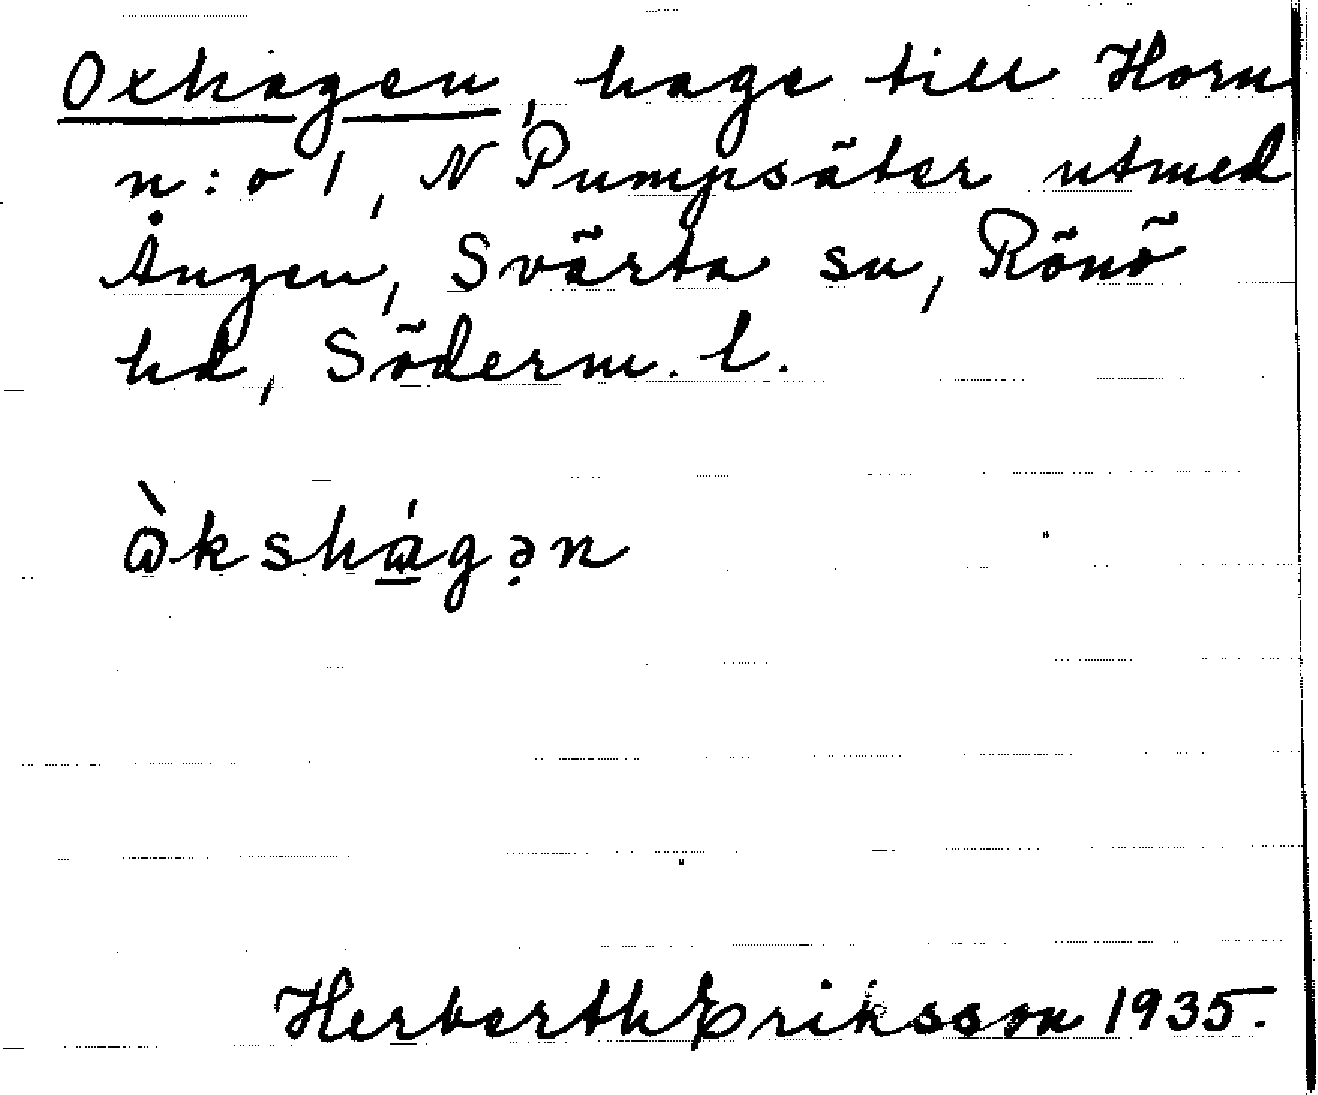 Oxhagen, hage till Horn
n:o 1, N Pumpsäter utmed
Ängen, Svärta sn, Rönö
hd, Söderm. l.
ὼkshɷ́gə̣n
Herberth Eriksson 1935.